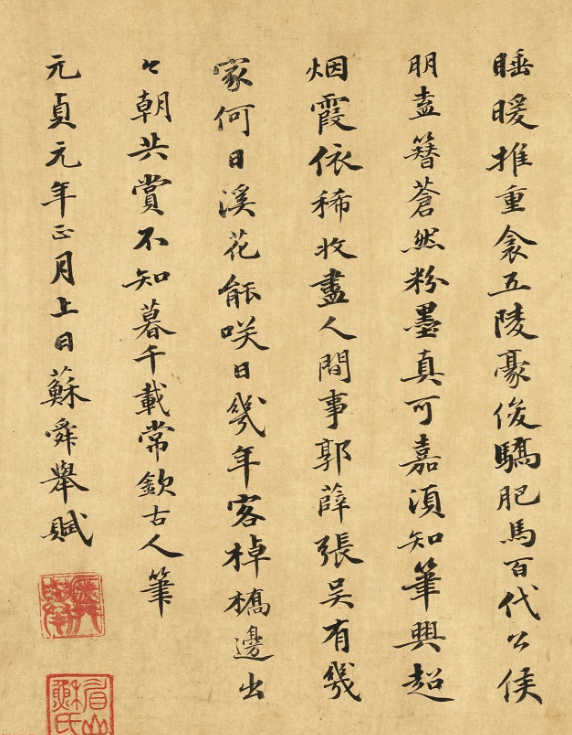 睡暖推重衾五陵豪俊驕肥馬百代公侯
朋盍簪蒼然粉墨真可嘉須知筆興超
烟霞依稀收盡人間事郭薛張吴有幾
家何日溪花能咲日幾年客棹橋邊出
々朝共賞不知暮千載常欽古人筆
元貞元年正月上日蘇舜舉賦
眉山
蘇氏